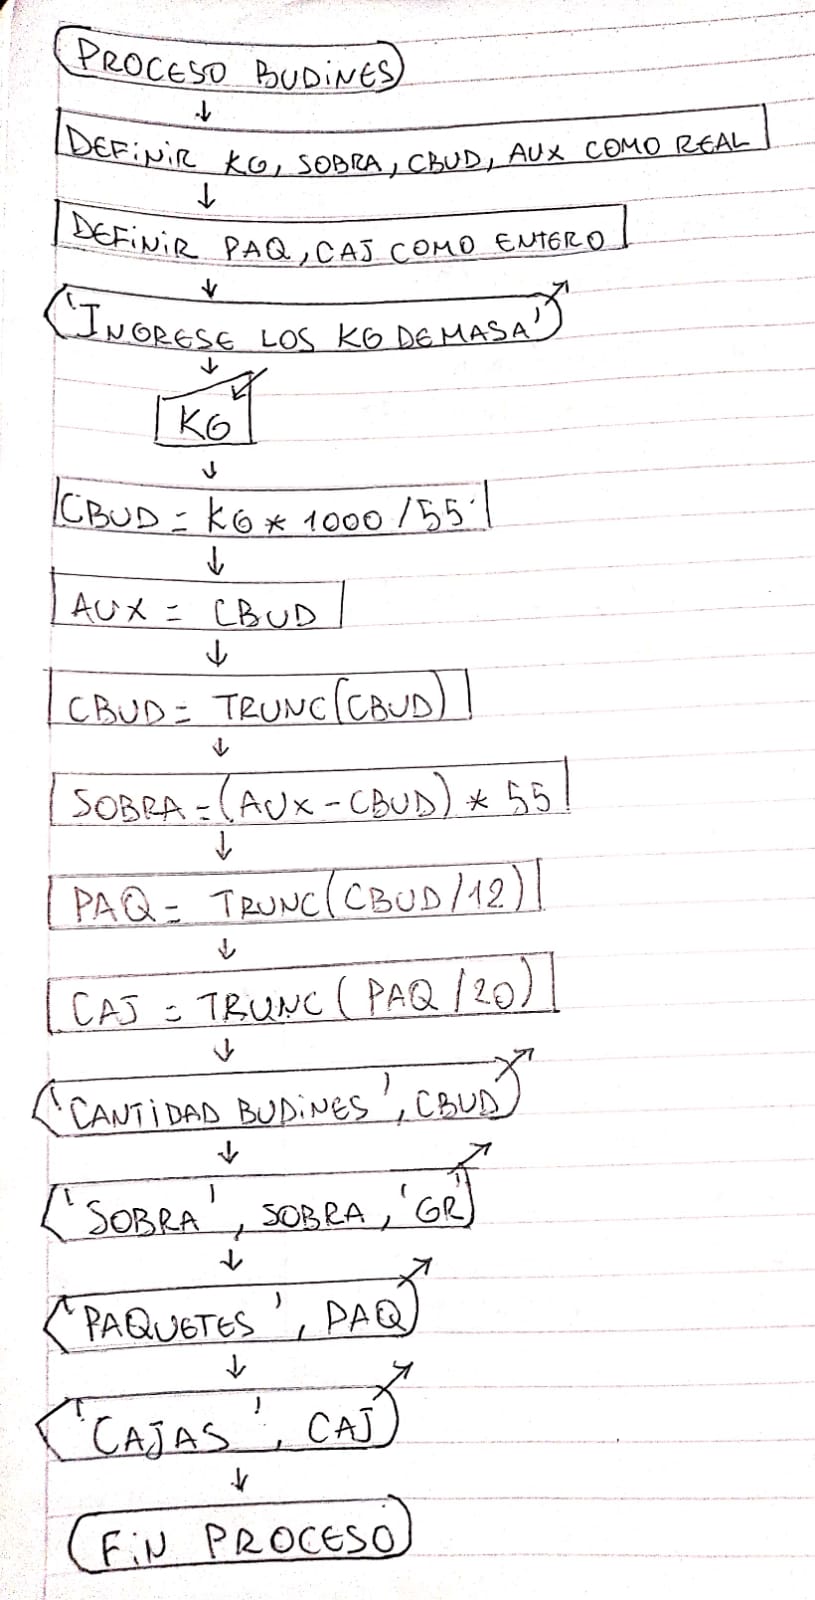 PROCESO BUDINES
DEFINIR KG, SOBRA, CBUD, AUX COMO REAL
DEFINIR PAQ, CAJ COMO ENTERO
'INGRESE LOS KG DE MASA'
KG
CBUD = KG * 1000 / 55
AUX = CBUD
CBUD = TRUNC(CBUD)
SOBRA = (AUX - CBUD) * 55
PAQ = TRUNC(CBUD/12)
CAJ = TRUNC(PAQ/20)
'CANTIDAD BUDINES', CBUD
'SOBRA', SOBRA, 'GR'
'PAQUETES', PAQ
'CAJAS', CAJ
FIN PROCESO